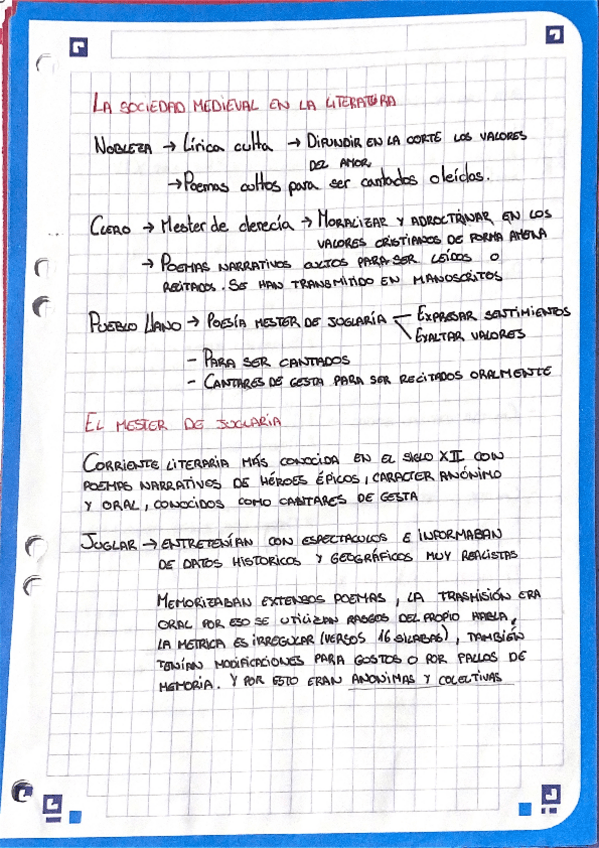 LA SOCIEDAD MEDIEVAL EN LA LITERATURA
NOBLEZA → Lírica culta → DIFUNDIR EN LA CORTE LOS VALORES
DEL AMOR
→ Poemas cultos para ser cantados o leídos.
CLERO → Mester de clerecía → MORALIZAR Y ADROCTRINAR EN LOS
VALORES CRISTIANOS DE FORMA AMENA
→ POEMAS NARRATIVOS CULTOS PARA SER LEÍDOS O
RECITADOS. SE HAN TRANSMITIDO EN MANOSCRITOS
PUEBLO LLANO → POESÍA MESTER DE JUGLARÍA — EXPRESAR SENTIMIENTOS
\ EXALTAR VALORES
- PARA SER CANTADOS
- CANTARES DE GESTA PARA SER RECITADOS ORALMENTE
EL MESTER DE JUGLARÍA
CORRIENTE LITERARIA MÁS CONOCIDA EN EL SIGLO XII CON
POEMAS NARRATIVOS DE HÉROES ÉPICOS, CARACTER ANÓNIMO
Y ORAL, CONOCIDOS COMO CANTARES DE GESTA
JUGLAR → ENTRETENÍAN CON ESPECTACULOS E INFORMABAN
DE DATOS HISTORICOS Y GEOGRÁFICOS MUY REALISTAS
MEMORIZABAN EXTENSOS POEMAS, LA TRASMISIÓN ERA
ORAL POR ESO SE UTILIZAN RASGOS DEL PROPIO HABLA,
LA METRICA ES IRREGULAR (VERSOS 16 SILABAS), TAMBIÉN
TENÍAN MODIFICACIONES PARA GUSTOS O POR FALLOS DE
MEMORIA. Y POR ESTO ERAN ANONIMAS Y COLECTIVAS